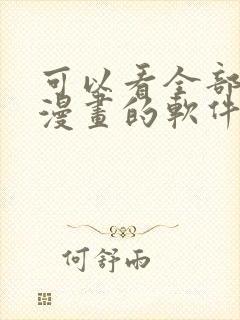 可以看全部
漫畫的軟件
何舒雨